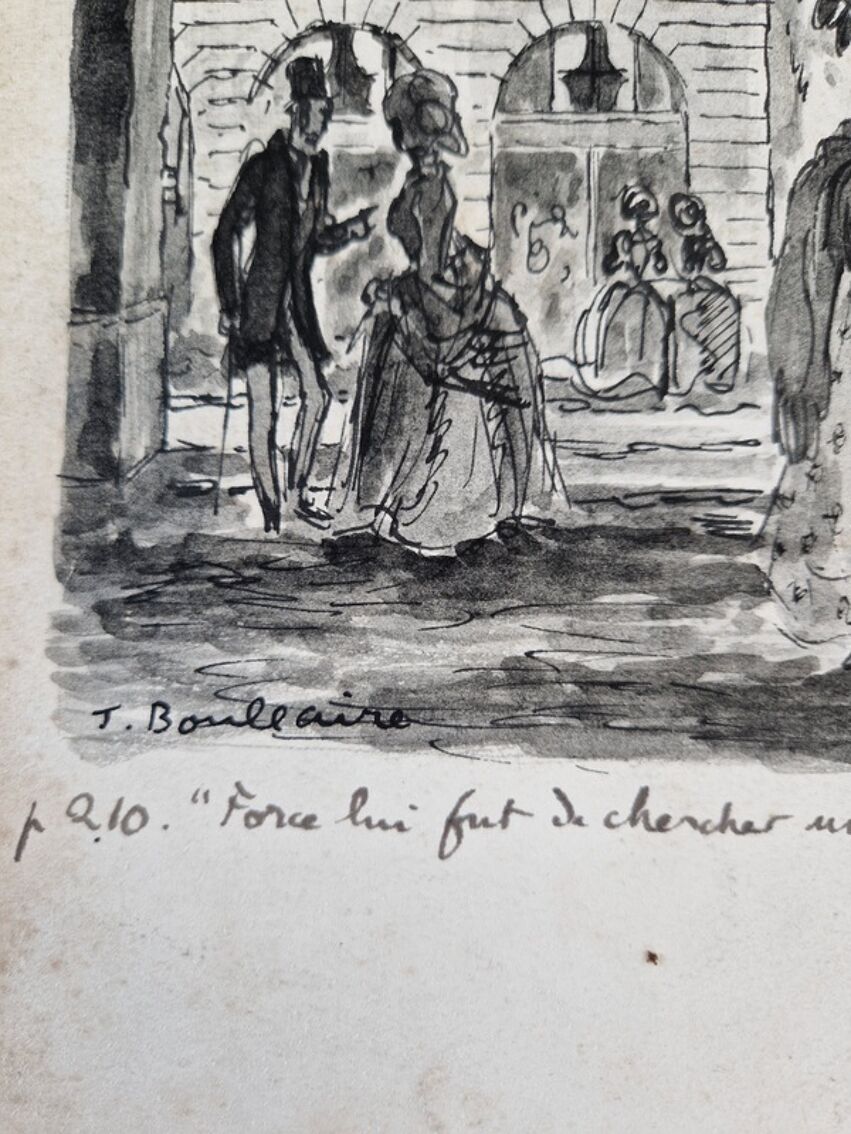 J. Boullaire
p 210. "Force lui fut de chercher un